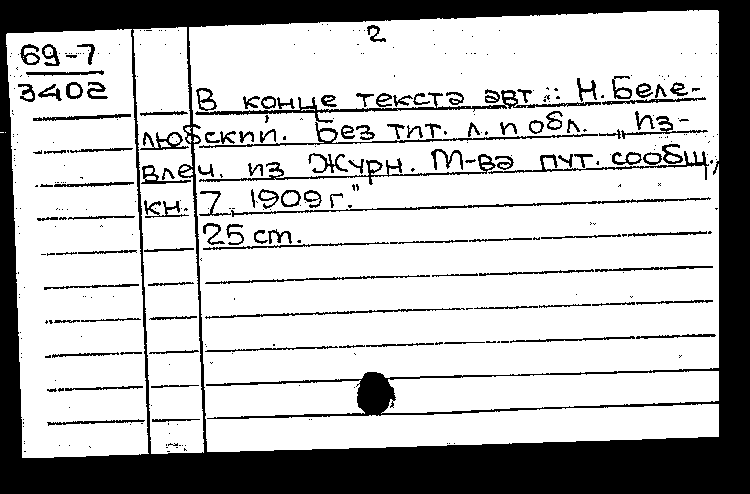 2
69-7
3402
В конце текста авт.: Н. Беле-
любский. Без тит. л. и обл. „Из-
влеч. из Журн. М-ва пут. сообщ.,
кн. 7, 1909 г."
25 cm.